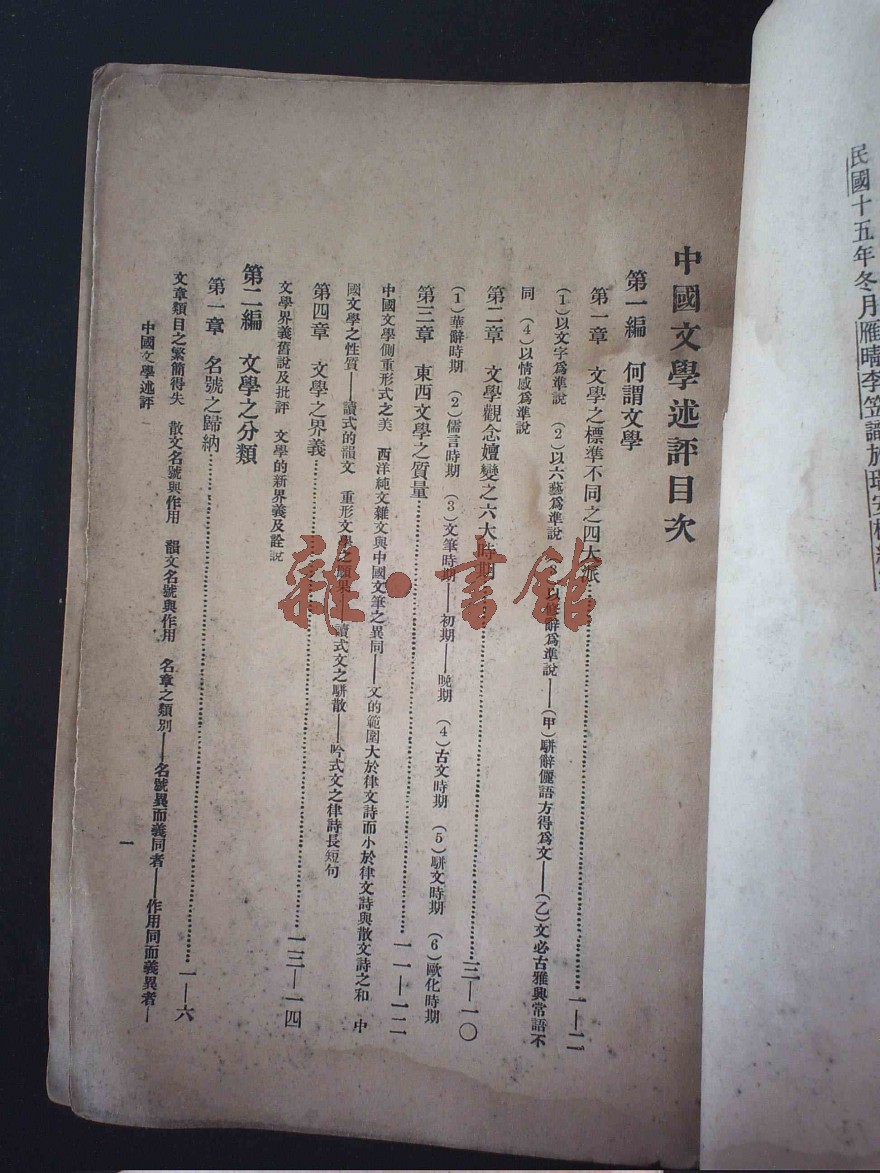 民國十五年冬月雁晴李笠識於瑞安
中國文學述評目次
第一編　何謂文學
第一章　文學之標準不同之四大派……一—二
（1）以文字爲準說　（2）以六藝爲準說　（3）以修辭爲準說——（甲）駢辭儷語方得爲文——（乙）文必古雅與常語不
同　（4）以情感爲準說
第二章　文學觀念嬗變之六大時期……三—一〇
（1）華辭時期　（2）儒言時期　（3）文筆時期——初期——晚期　（4）古文時期　（5）駢文時期　（6）歐化時期
第三章　東西文學之質量……一一—一二
中國文學側重形式之美　西洋純文雜文與中國文筆之異同——文的範圍大於律文詩而小於律文詩與散文詩之和　中
國文學之性質——讀式的韻文　重形文學之顯果——讀式文之駢散——吟式文之律詩長短句
第四章　文學之界義……一三—一四
文學界義舊說及批評　文學的新界義及詮說
第二編　文學之分類
第一章　名號之歸納……一—六
文章類目之繁簡得失　散文名號與作用　韻文名號與作用　名章之類別——名號異而義同者——作用同而義異者—
中國文學述評
一
雜·書館